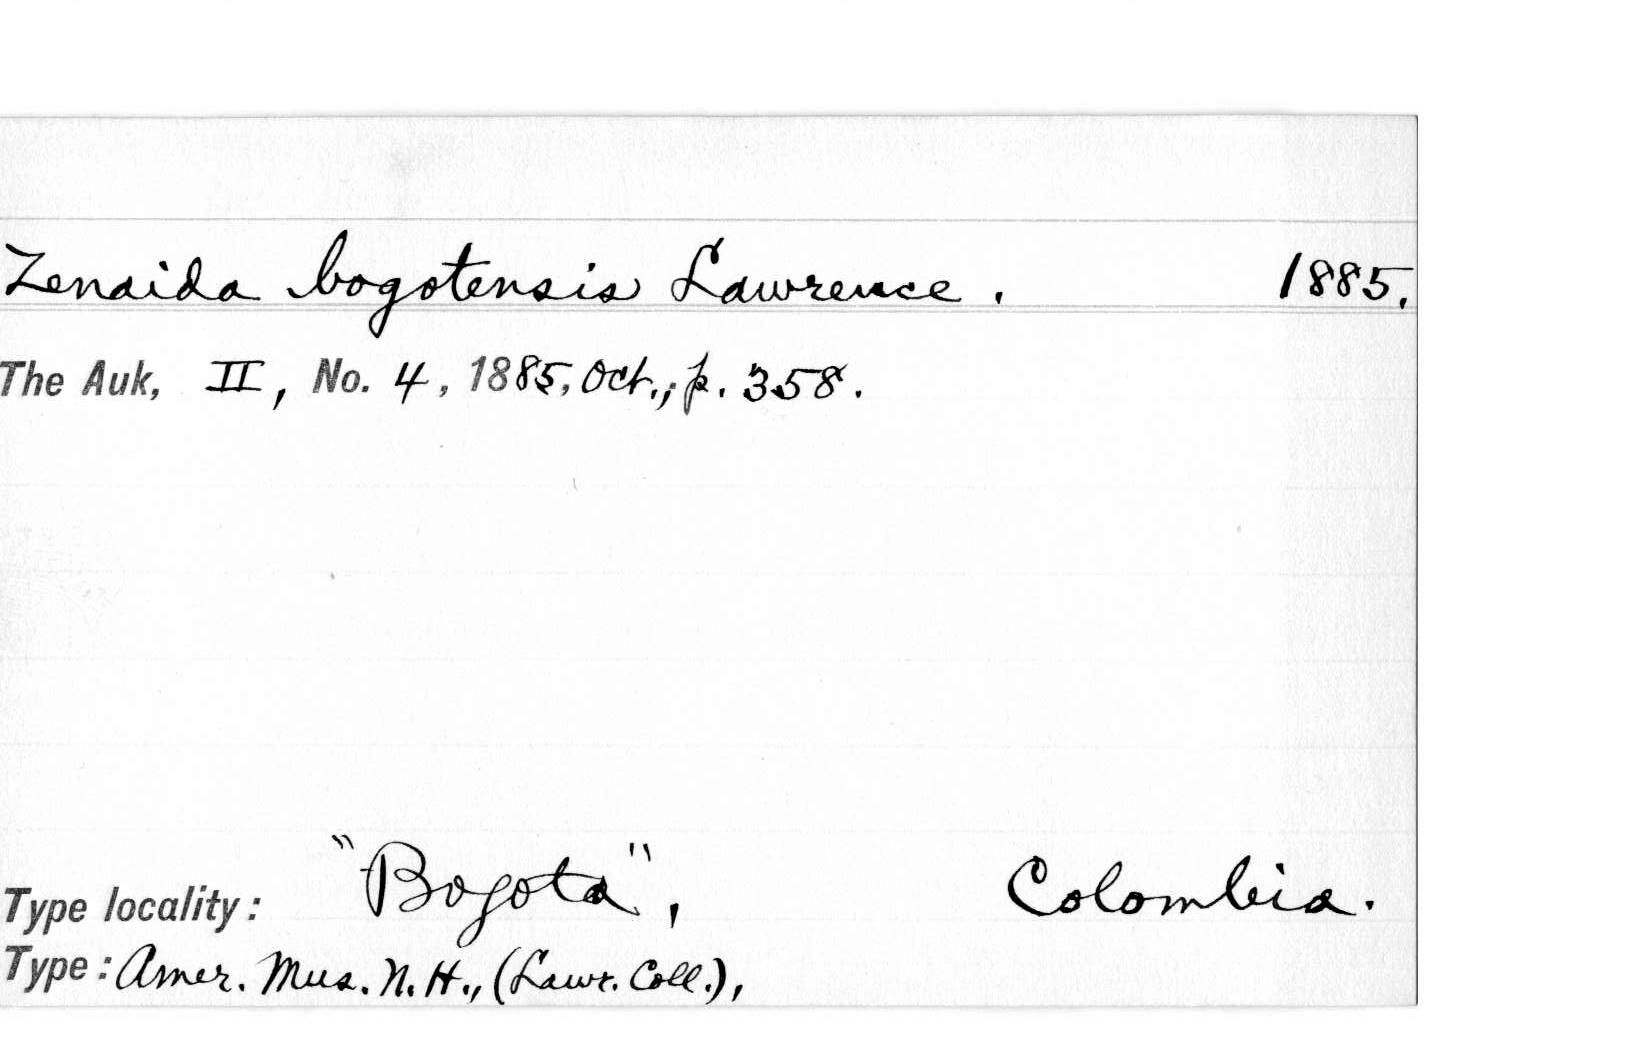 Zenaida bogotensis Lawrence. 1885.
The Auk, II, No. 4, 1885, Oct., p. 358.
"Bogota", Colombia.
Type locality:
Type: Amer. Mus. N. H., (Lawr. Coll.),